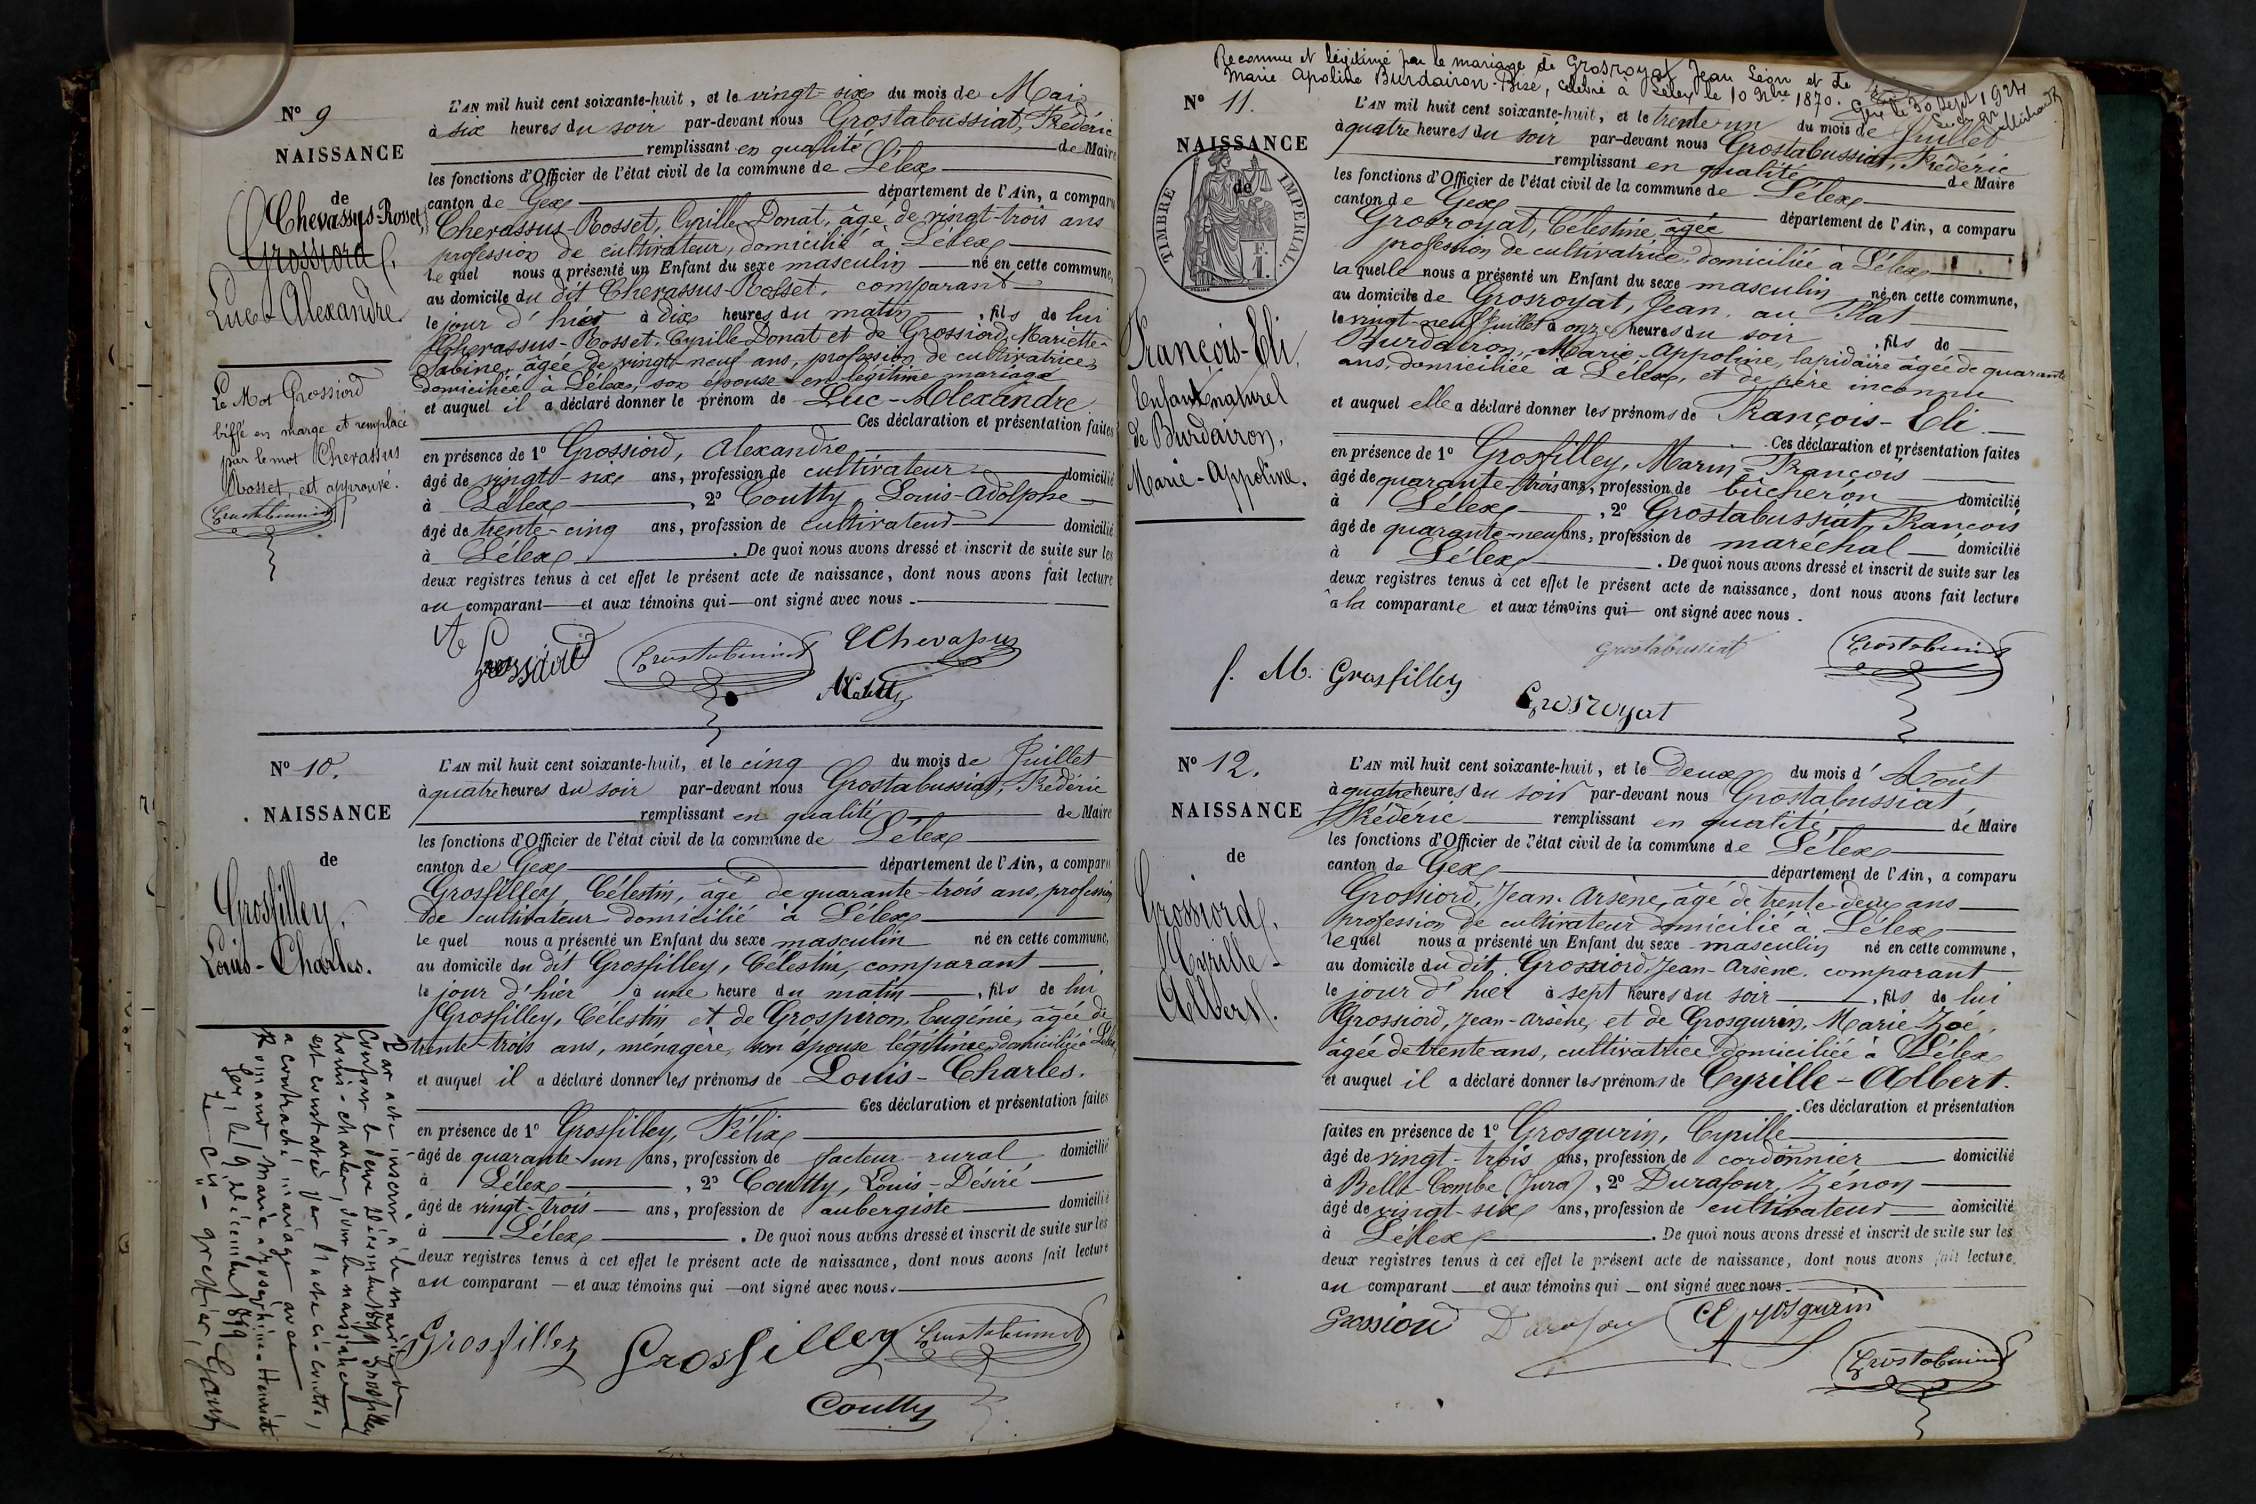 N° 9
NAISSANCE
de
Chevassus-Rosset,
Grossiord
Luc-Alexandre.
Le Mot Grossiord
biffé en marge et remplacé
par le mot Chevassus
Rosset, est approuvé.
L'AN mil huit cent soixante-huit, et le vingt-six du mois de Mai
à six heures du soir par-devant nous Grostabussiat, Frédéric
remplissant en qualité de Maire
les fonctions d'Officier de l'état civil de la commune de Lélex
canton de Gex département de l'Ain, a comparu
Chevassus-Rosset, Cyrille Donat, âgé de vingt-trois ans
profession de cultivateur, domicilié à Lélex
le quel nous a présenté un Enfant du sexe masculin né en cette commune,
au domicile du dit Chevassus-Rosset, comparant
le jour d'hier à dix heures du matin, fils de lui
Chevassus-Rosset, Cyrille Donat et de Grossiord, Mariette-
Sabine, âgée de vingt-neuf ans, profession de cultivatrice
domiciliée à Lélex, son épouse en légitime mariage
et auquel il a déclaré donner le prénom de Luc-Alexandre
Ces déclaration et présentation faites
en présence de 1° Grossiord, Alexandre
âgé de vingt-six ans, profession de cultivateur domicilié
à Lélex, 2° Coutty, Louis-Adolphe
âgé de trente-cinq ans, profession de cultivateur domicilié
à Lélex. De quoi nous avons dressé et inscrit de suite sur les
deux registres tenus à cet effet le présent acte de naissance, dont nous avons fait lecture
au comparant et aux témoins qui ont signé avec nous.
Grossiord Grostabussiat Chevassus
N° 10.
NAISSANCE
de
Grosfilley,
Louis-Charles.
Par acte inscrit à la mairie de
le deux Décembre 1899 Grosfilley
Louis-Charles, dont la naissance
est constatée par l'acte ci-contre,
a contracté mariage avec
Romand Marie-Joséphine-Henriette
Gex, le 9 décembre 1899
Le greffier,
L'AN mil huit cent soixante-huit, et le cinq du mois de Juillet
à quatre heures du soir par-devant nous Grostabussiat, Frédéric
remplissant en qualité de Maire
les fonctions d'Officier de l'état civil de la commune de Lélex
canton de Gex département de l'Ain, a comparu
Grosfilley, Célestin, âgé de quarante-trois ans, profession
de cultivateur domicilié à Lélex
le quel nous a présenté un Enfant du sexe masculin né en cette commune,
au domicile du dit Grosfilley, Célestin, comparant
le jour d'hier à une heure du matin, fils de lui
Grosfilley, Célestin et de Grospiron, Eugénie, âgée de
trente-trois ans, ménagère, son épouse légitime, domiciliée à Lélex
et auquel il a déclaré donner les prénoms de Louis-Charles.
Ces déclaration et présentation faites
en présence de 1° Grosfilley, Félix
âgé de quarante-un ans, profession de facteur rural domicilié
à Lélex, 2° Coutty, Louis-Désiré
âgé de vingt-trois ans, profession de aubergiste domicilié
à Lélex. De quoi nous avons dressé et inscrit de suite sur les
deux registres tenus à cet effet le présent acte de naissance, dont nous avons fait lecture
au comparant et aux témoins qui ont signé avec nous.
Grosfilley Grosfilley Grostabussiat
Coutty
Reconnu et légitimé par le mariage de Grosroyat Jean Léon et de
Marie Apoline Burdairon-Bisé, célébré à Lélex le 10 9bre 1870.
Gex le 30 Sept 1924
N° 11.
NAISSANCE
de
TIMBRE IMPERIAL
François-Eli,
Enfant naturel
de Burdairon,
Marie-Appoline.
L'AN mil huit cent soixante-huit, et le trente-un du mois de Juillet
à quatre heures du soir par-devant nous Grostabussiat, Frédéric
remplissant en qualité de Maire
les fonctions d'Officier de l'état civil de la commune de Lélex
canton de Gex département de l'Ain, a comparu
Grosroyat, Célestine, âgée
profession de cultivatrice, domiciliée à Lélex
la quelle nous a présenté un Enfant du sexe masculin né en cette commune,
au domicile de Grosroyat, Jean, au Plat
le vingt-neuf Juillet à onze heures du soir, fils de
Burdairon, Marie-Appoline, lapidaire âgée de quarante
ans, domiciliée à Lélex, et de père inconnu
et auquel elle a déclaré donner les prénoms de François-Eli
Ces déclaration et présentation faites
en présence de 1° Grosfilley, Marin-François
âgé de quarante-trois ans, profession de bûcheron domicilié
à Lélex, 2° Grostabussiat, François
âgé de quarante-neuf ans, profession de maréchal domicilié
à Lélex. De quoi nous avons dressé et inscrit de suite sur les
deux registres tenus à cet effet le présent acte de naissance, dont nous avons fait lecture
à la comparante et aux témoins qui ont signé avec nous.
Grostabussiat Grostabussiat
f. M. Grosfilley
Grosroyat
N° 12.
NAISSANCE
de
Grossiord,
Cyrille-
Albert.
L'AN mil huit cent soixante-huit, et le deux du mois d'Août
à quatre heures du soir par-devant nous Grostabussiat,
Frédéric remplissant en qualité de Maire
les fonctions d'Officier de l'état civil de la commune de Lélex
canton de Gex département de l'Ain, a comparu
Grossiord, Jean-Arsène, âgé de trente-deux ans
profession de cultivateur domicilié à Lélex
le quel nous a présenté un Enfant du sexe masculin né en cette commune,
au domicile du dit Grossiord, Jean-Arsène, comparant
le jour d'hier à sept heures du soir, fils de lui
Grossiord, Jean-Arsène, et de Grosgurin, Marie Zoé,
âgée de trente ans, cultivatrice domiciliée à Lélex
et auquel il a déclaré donner les prénoms de Cyrille-Albert.
Ces déclaration et présentation
faites en présence de 1° Grosgurin, Cyrille
âgé de vingt-trois ans, profession de cordonnier domicilié
à Belle-Combe (Jura), 2° Durafour, Zénon
âgé de vingt-six ans, profession de cultivateur domicilié
à Lélex. De quoi nous avons dressé et inscrit de suite sur les
deux registres tenus à cet effet le présent acte de naissance, dont nous avons fait lecture
au comparant et aux témoins qui ont signé avec nous.
Grossiord Durafour Grosgurin
Grostabussiat